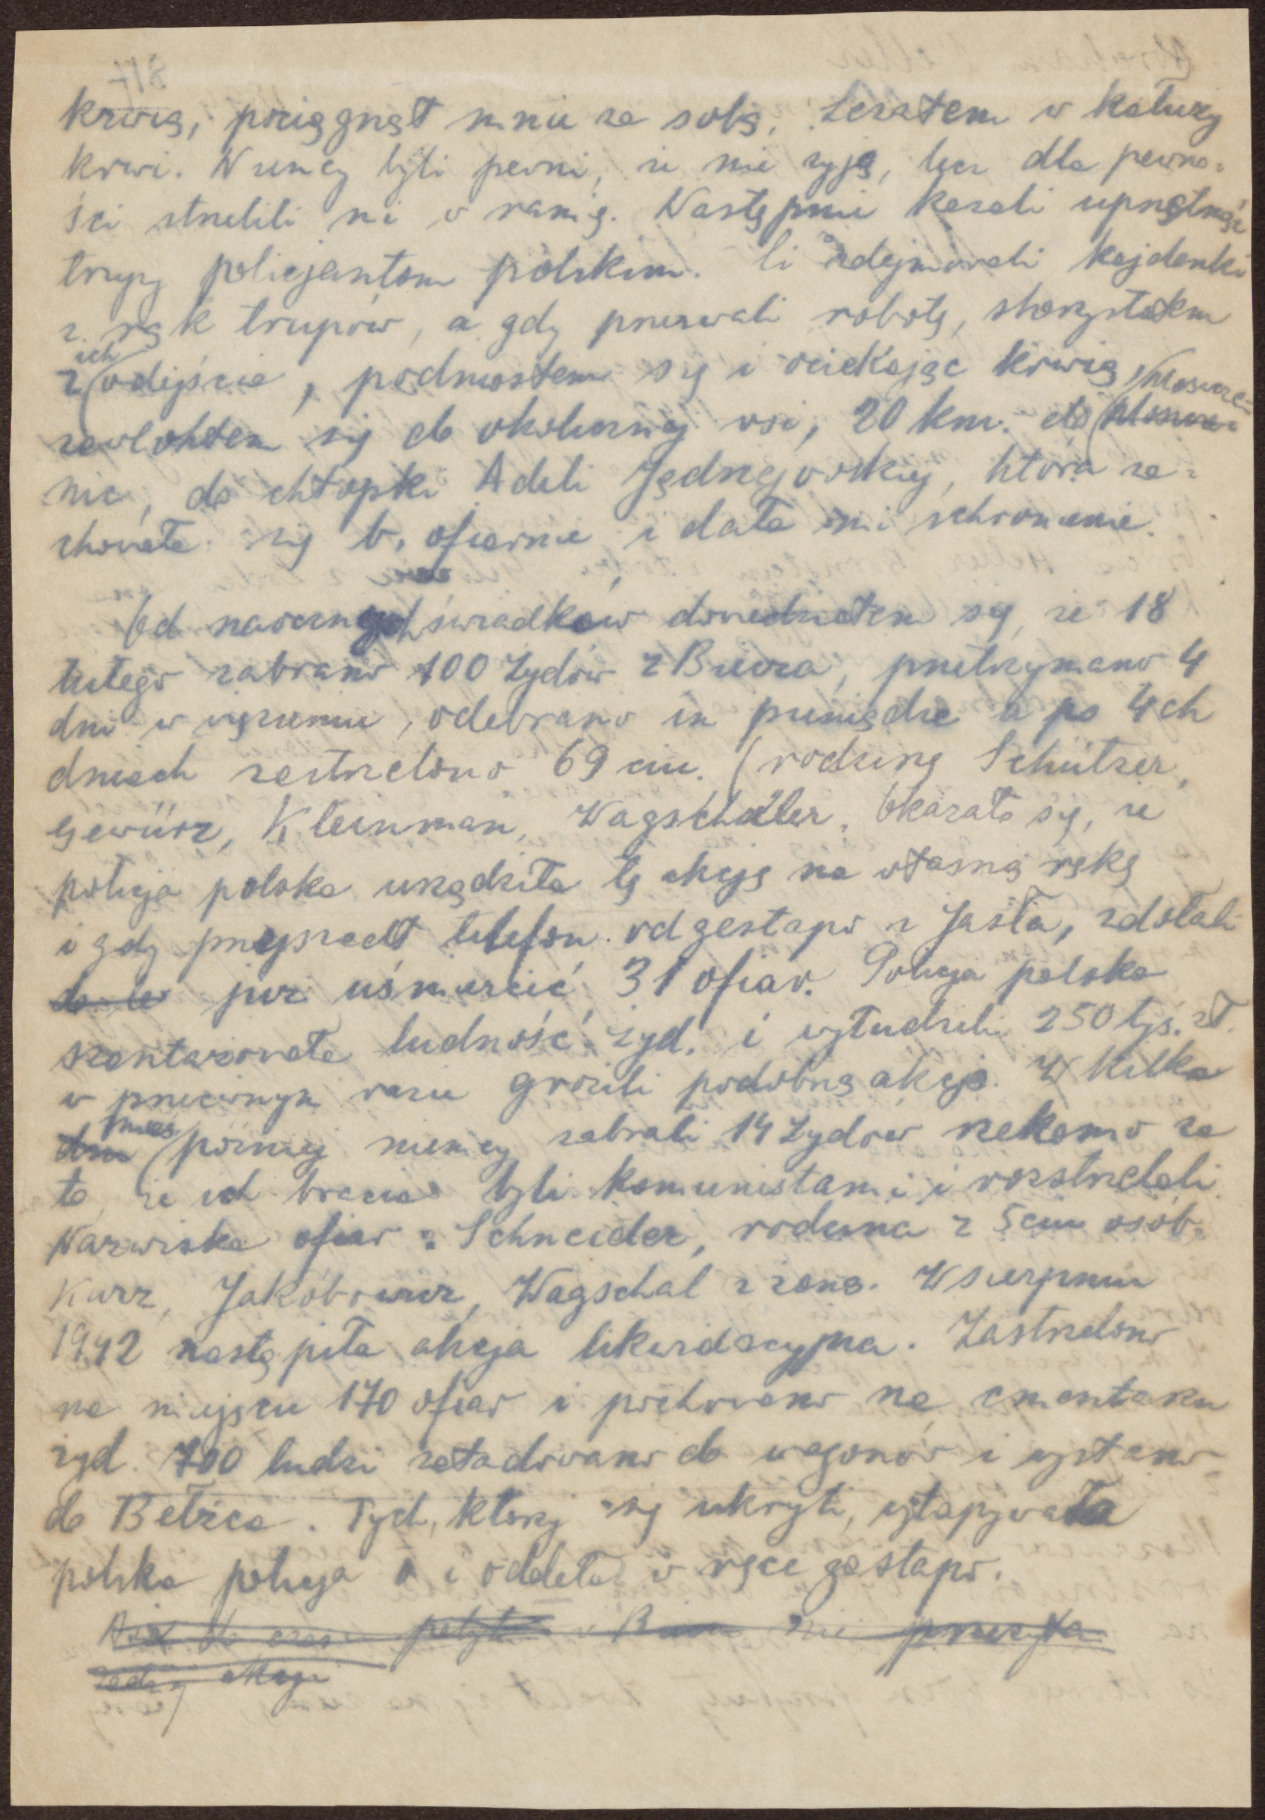 krwią, pociągnął mnie za sobą. Leżałem w kałuży
krwi. Niemcy byli pewni, że nie żyję, lecz dla pewno-
ści strzelili mi w ramię. Następnie kazali uprzątnąć
trupy policjantom polskim. Ci zdejmowali kajdanki
z rąk trupów, a gdy przerwali robotę, skorzystałem
z ich odejścia, podniosłem się i ociekając krwią,
zawlokłem się do okolicznej wsi, 20 km. do
nic, do chłopki Adeli Jędrzejowskiej, która za-
chowała się b. ofiarnie i dała mi schronienie.
Od naocznych świadków dowiedziałem się, że 18
lutego zabrano 100 Żydów z Biecza, przetrzymano 4
dni w więzieniu, odebrano im pieniądze a po 4ch
dniach zastrzelono 69 ciu. (rodzinę Schützer,
Gewürz, Kleinman, Wagschaller. Okazało się, że
policja polska urządziła tę akcję na własną rękę
i gdy przyszedł telefon od gestapo z Jasła, zdołali
już uśmiercić 31 ofiar. Policja polska
szantażowała ludność żyd. i wyłudzili 250 tys. zł.
w przeciwnym razie grozili podobną akcją. W kilka
dni mies później niemcy zabrali 14 Żydów rzekomo za
to że ich bracia byli komunistami i rozstrzelali.
Nazwiska ofiar: Schneider, rodzina z 5ciu osób.
Kurz, Jakóbowicz, Wagschal z żoną. W sierpniu
1942 nastąpiła akcja likwidacyjna. Zastrzelono
na miejscu 170 ofiar i pochowano na cmentarzu
żyd. 700 ludzi załadowano do wagonów i wysłano
do Bełżca. Tych, którzy się ukryli, wyłapywała
polska policja i oddała w ręce gestapo.
nie przeszła
akcja